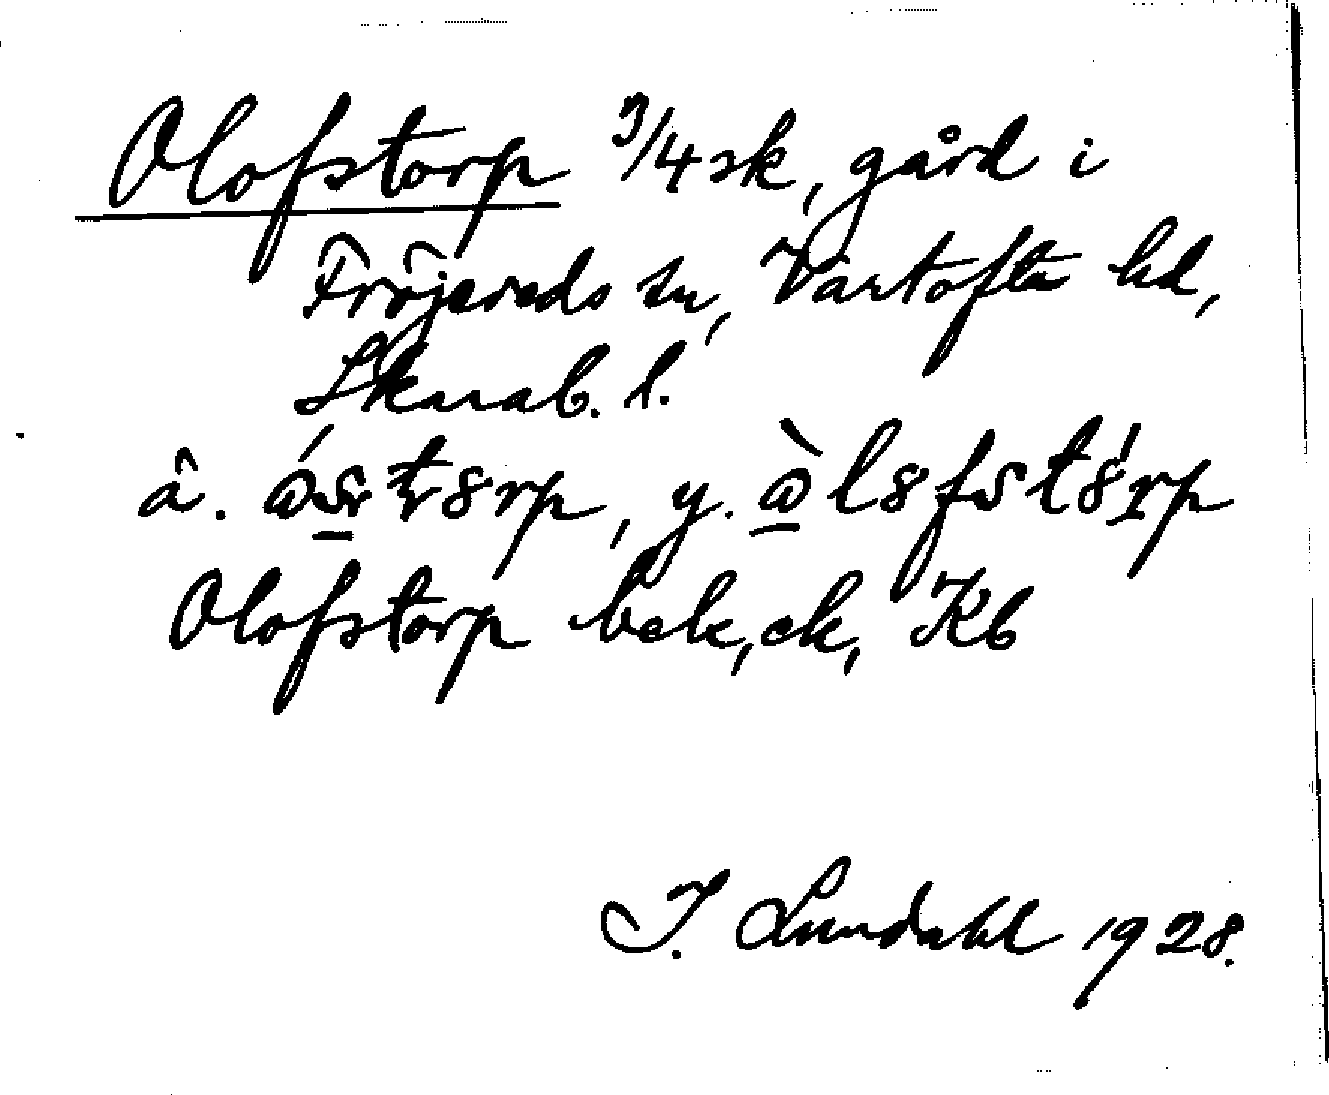 Olofstorp 3/4 sk, gård i
Fröjereds sn, Vartofta hd,
Skarab. l.
å. , y.
Olofstorp bek, ek, Kb
I. Lundahl 1928.